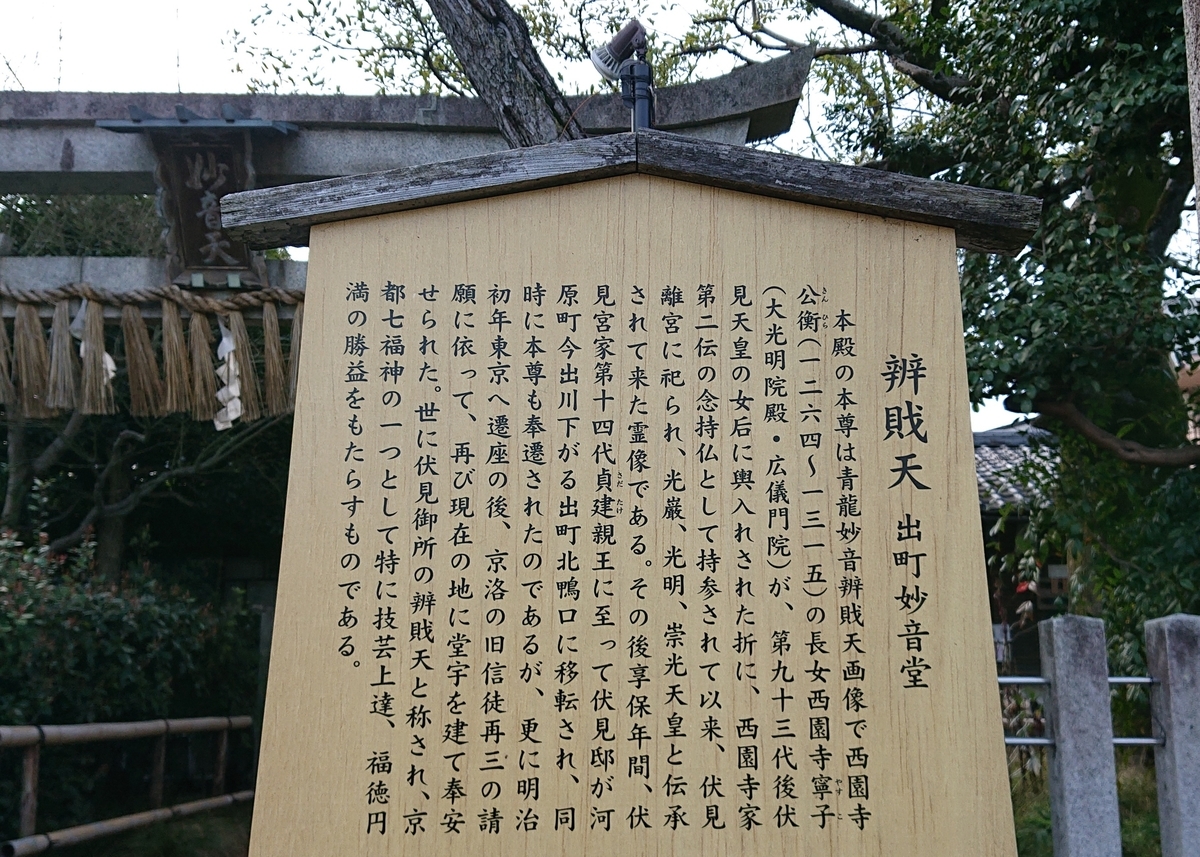 辨戝天 出町妙音堂
本殿の本尊は青龍妙音辨戝天画像で西園寺
公衡(一二六四～一三一五)の長女西園寺寧子
(大光明院殿・広儀門院)が、第九十三代後伏
見天皇の女后に輿入れされた折に、西園寺家
第二伝の念持仏として持参されて以来、伏見
離宮に祀られ、光巌、光明、崇光天皇と伝承
されて来た霊像である。その後享保年間、伏
見宮家第十四代貞建親王に至って伏見邸が河
原町今出川下がる出町北鴨口に移転され、同
時に本尊も奉遷されたのであるが、更に明治
初年東京へ遷座の後、京洛の旧信徒再三の請
願に依って、再び現在の地に堂宇を建て奉安
せられた。世に伏見御所の辨戝天と称され、京
都七福神の一つとして特に技芸上達、福徳円
満の勝益をもたらすものである。
きん ひら
やす こ
さだ たけ
妙音天